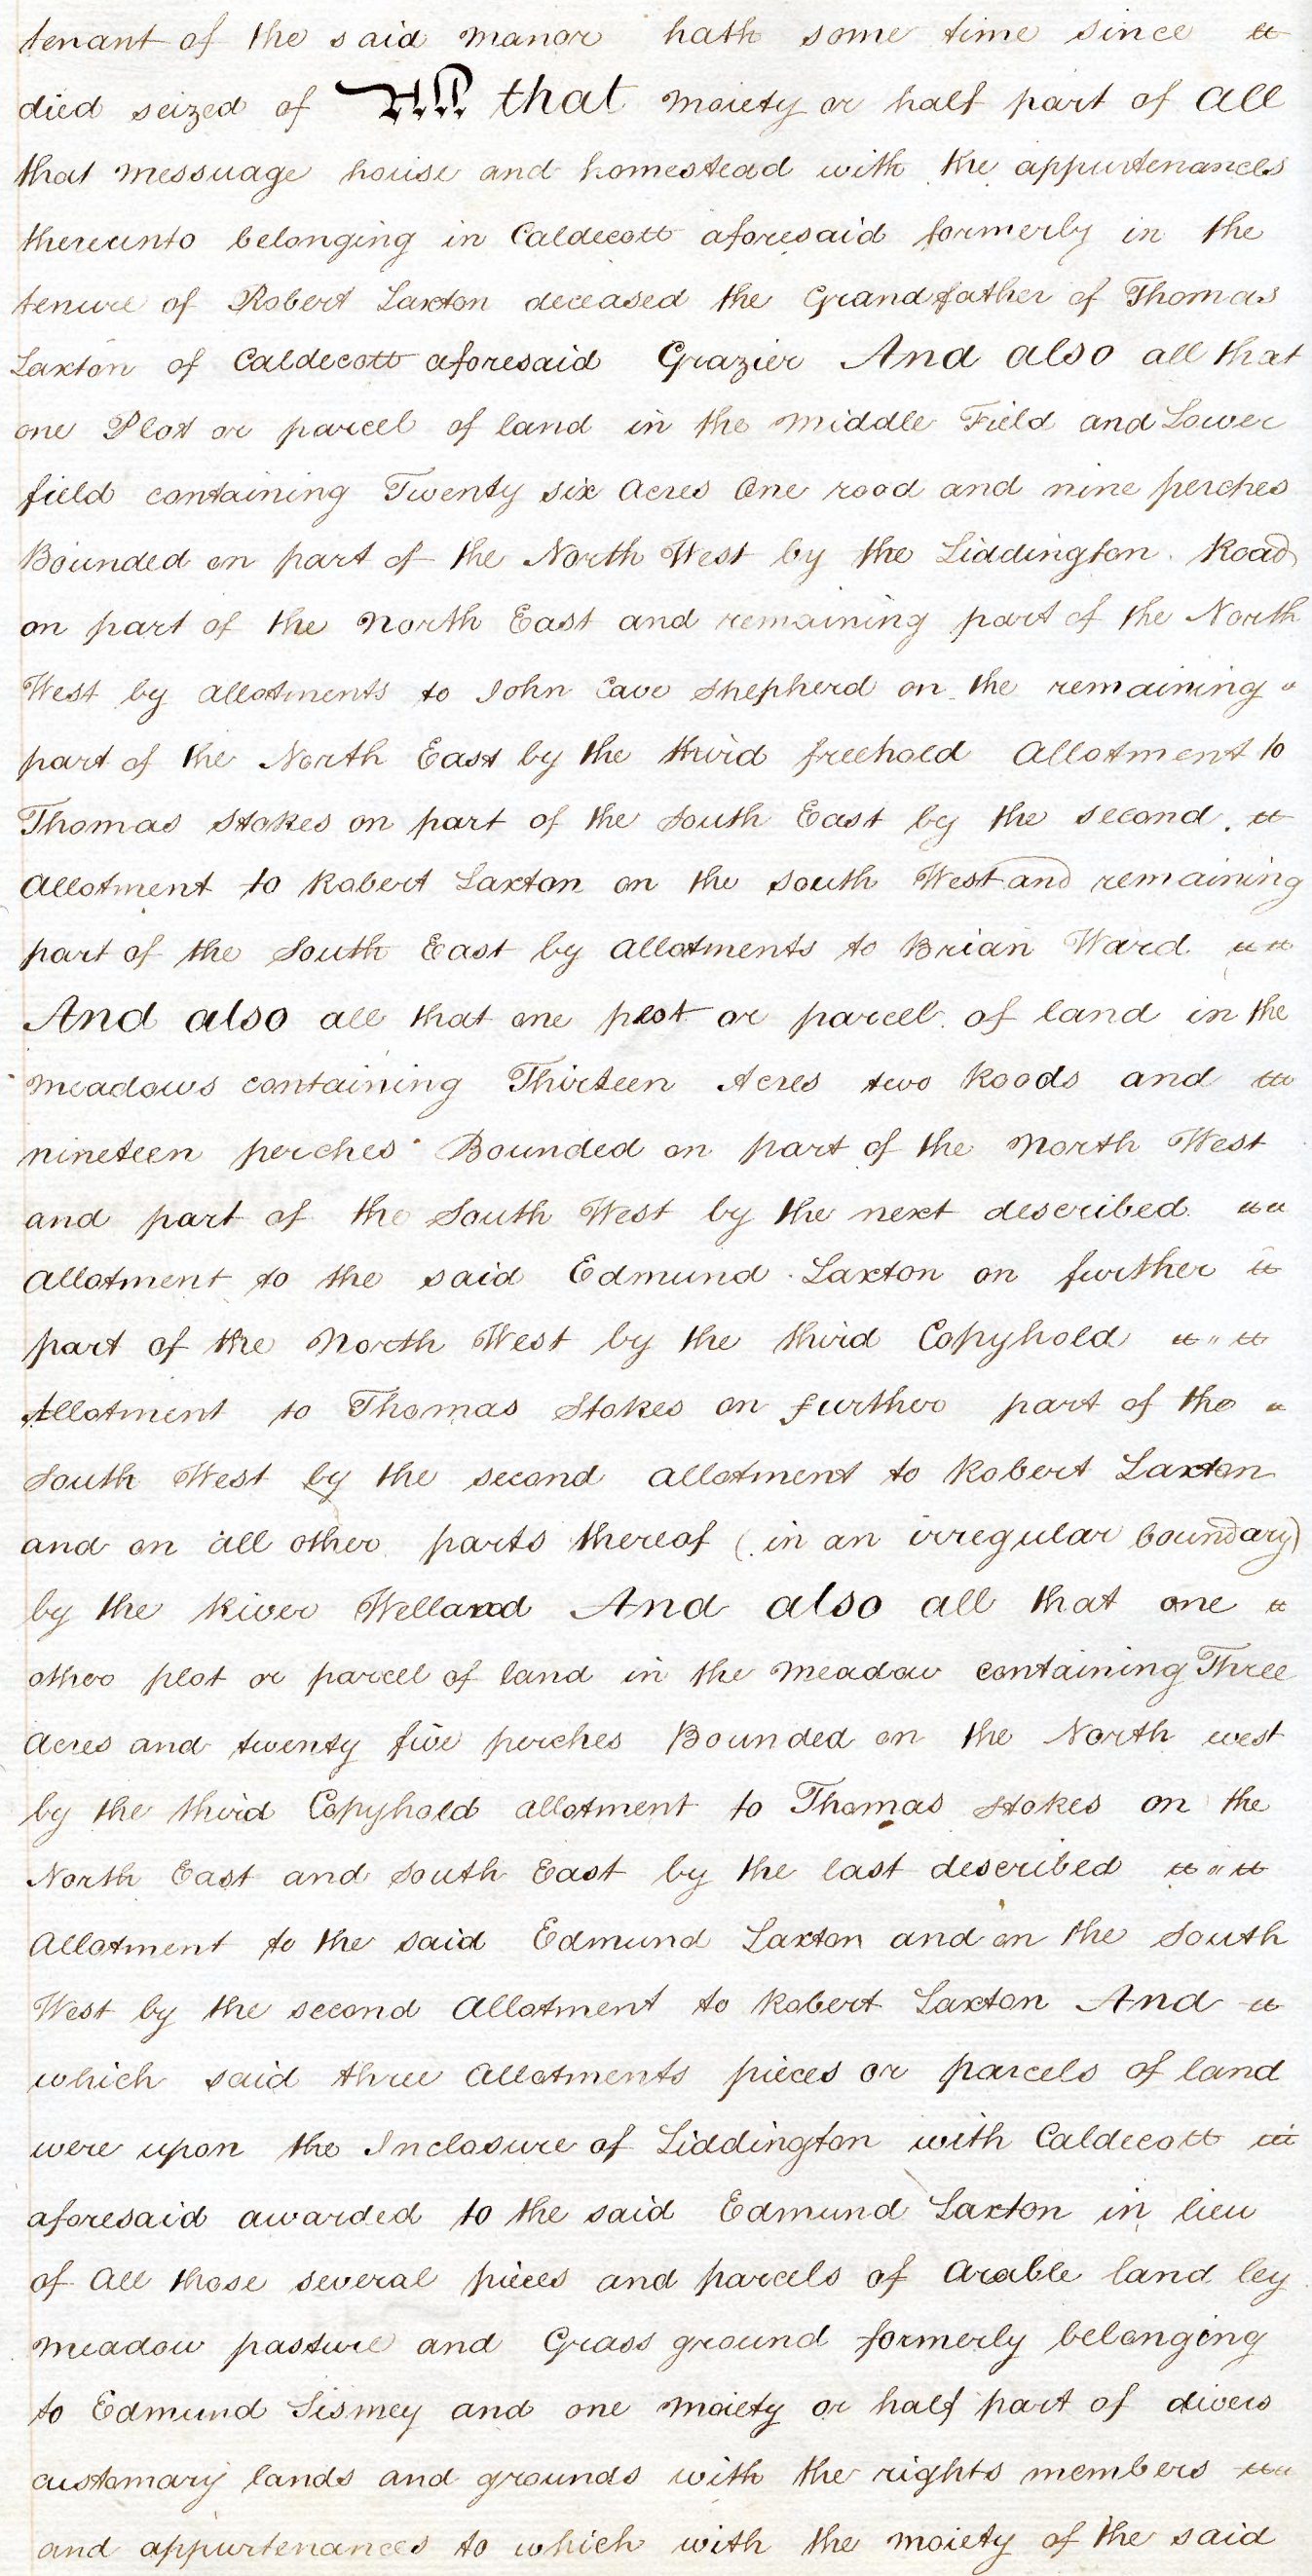 tenant of the said manor hath some time since
died seized of All that moiety or half part of all
that messuage house and homestead with the appurtenances
thereunto belonging in Caldecott aforesaid formerly in the
tenure of Robert Laxton deceased the Grandfather of Thomas
Laxton of Caldecott aforesaid Grazier And also all that
one Plot or parcel of land in the middle Field and Lower
field containing Twenty six Acres One rood and nine perches
Bounded on part of the North West by the Liddington Road
on part of the North East and remaining part of the North
West by allotments to John Cave Shepherd on the remaining
part of the North East by the third freehold Allotment to
Thomas Stokes on part of the South East by the second
Allotment to Robert Laxton on the South West and remaining
part of the South East by Allotments to Brian Ward
And also all that one plot or parcel of land in the
meadows containing Thirteen Acres two Roods and
nineteen perches Bounded on part of the North West
and part of the South West by the next described
Allotment to the said Edmund Laxton on further
part of the North West by the third Copyhold
Allotment to Thomas Stokes on further part of the
South West by the second allotment to Robert Laxton
and on all other parts thereof (in an irregular boundary)
by the River Welland And also all that one
other plot or parcel of land in the meadow containing Three
Acres and twenty five perches Bounded on the North west
by the third Copyhold allotment to Thomas Stokes on the
North East and South East by the last described
Allotment to the said Edmund Laxton and on the South
West by the second Allotment to Robert Laxton And
which said three Allotments pieces or parcels of land
were upon the Inclosure of Liddington with Caldecott
aforesaid awarded to the said Edmund Laxton in lieu
of All those several pieces and parcels of Arable land ley
meadow pasture and Grass ground formerly belonging
to Edmund Sismey and one moiety or half part of divers
customary lands and grounds with the rights members
and appurtenances to which with the moiety of the said